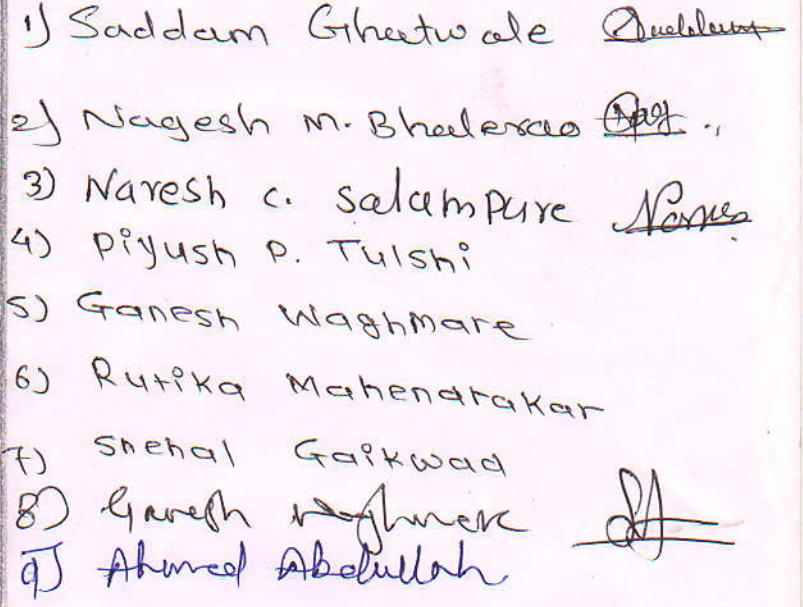 1) Saddam Ghatwale
2) Nagesh M. Bhalerao
3) Naresh C. Salampure Nares
4) Piyush P. Tulshi
5) Ganesh Waghmare
6) Rutika Mahendrakar
7) Snehal Gaikwad
8) Ganesh Waghmare
9) Ahmed Abdullah